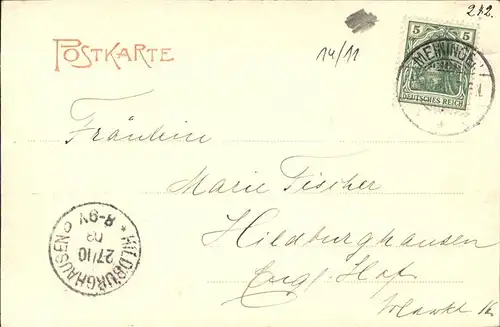 242.
POSTKARTE
14/11
5 5
MEININGEN
DEUTSCHES REICH
Fräulein
Marie Fischer
Hildburghausen
Engl. Hof
Markt 16
* HILDBURGHAUSEN *
27/10
03
8-9V